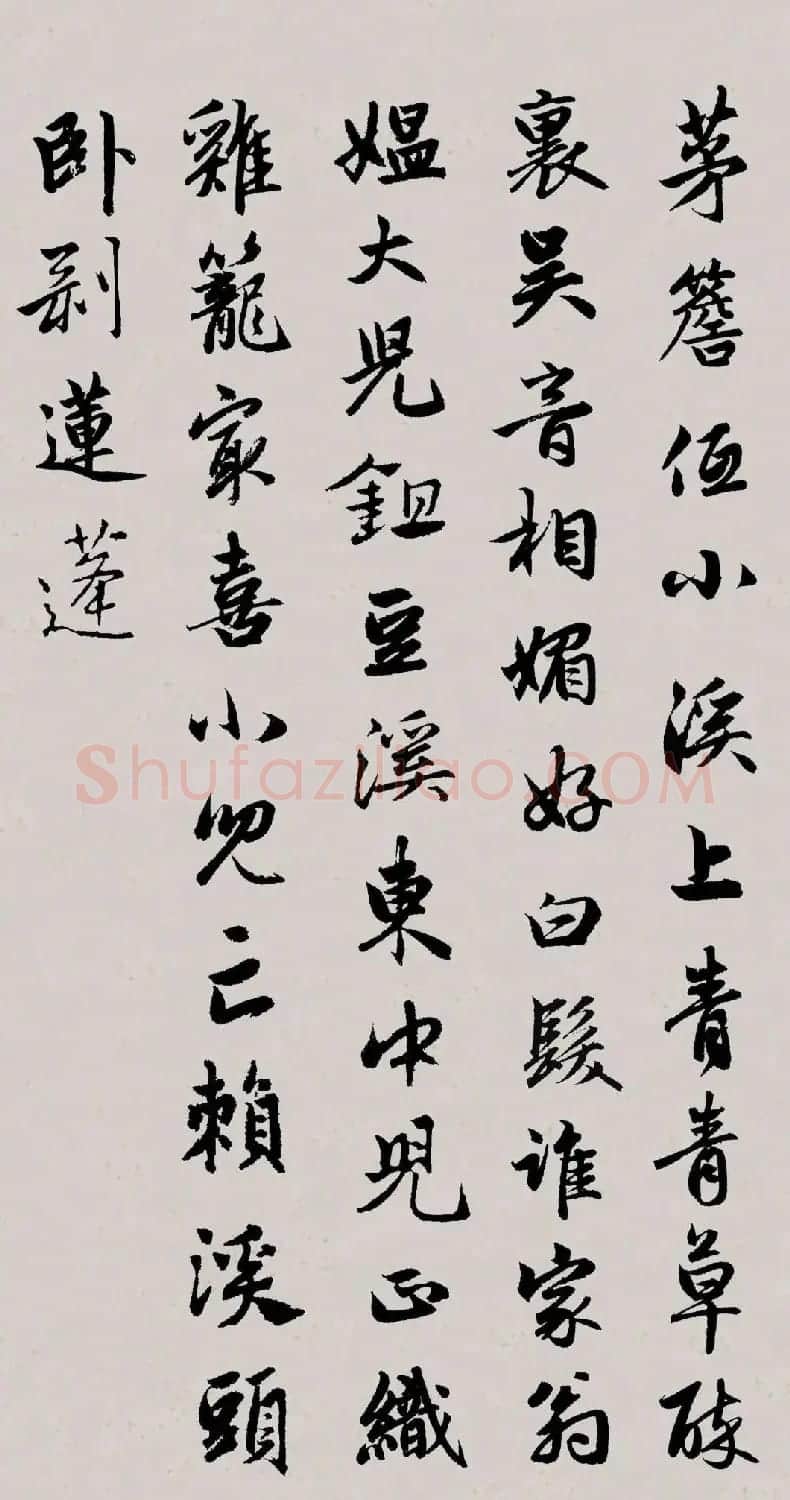 茅簷低小溪上青青草醉
裏吴音相媚好白髮誰家翁
媼大兒鉏豆溪東中兒正織
雞籠寂喜小兒亡賴溪頭
卧剥蓮蓬
Shufaziliao.COM